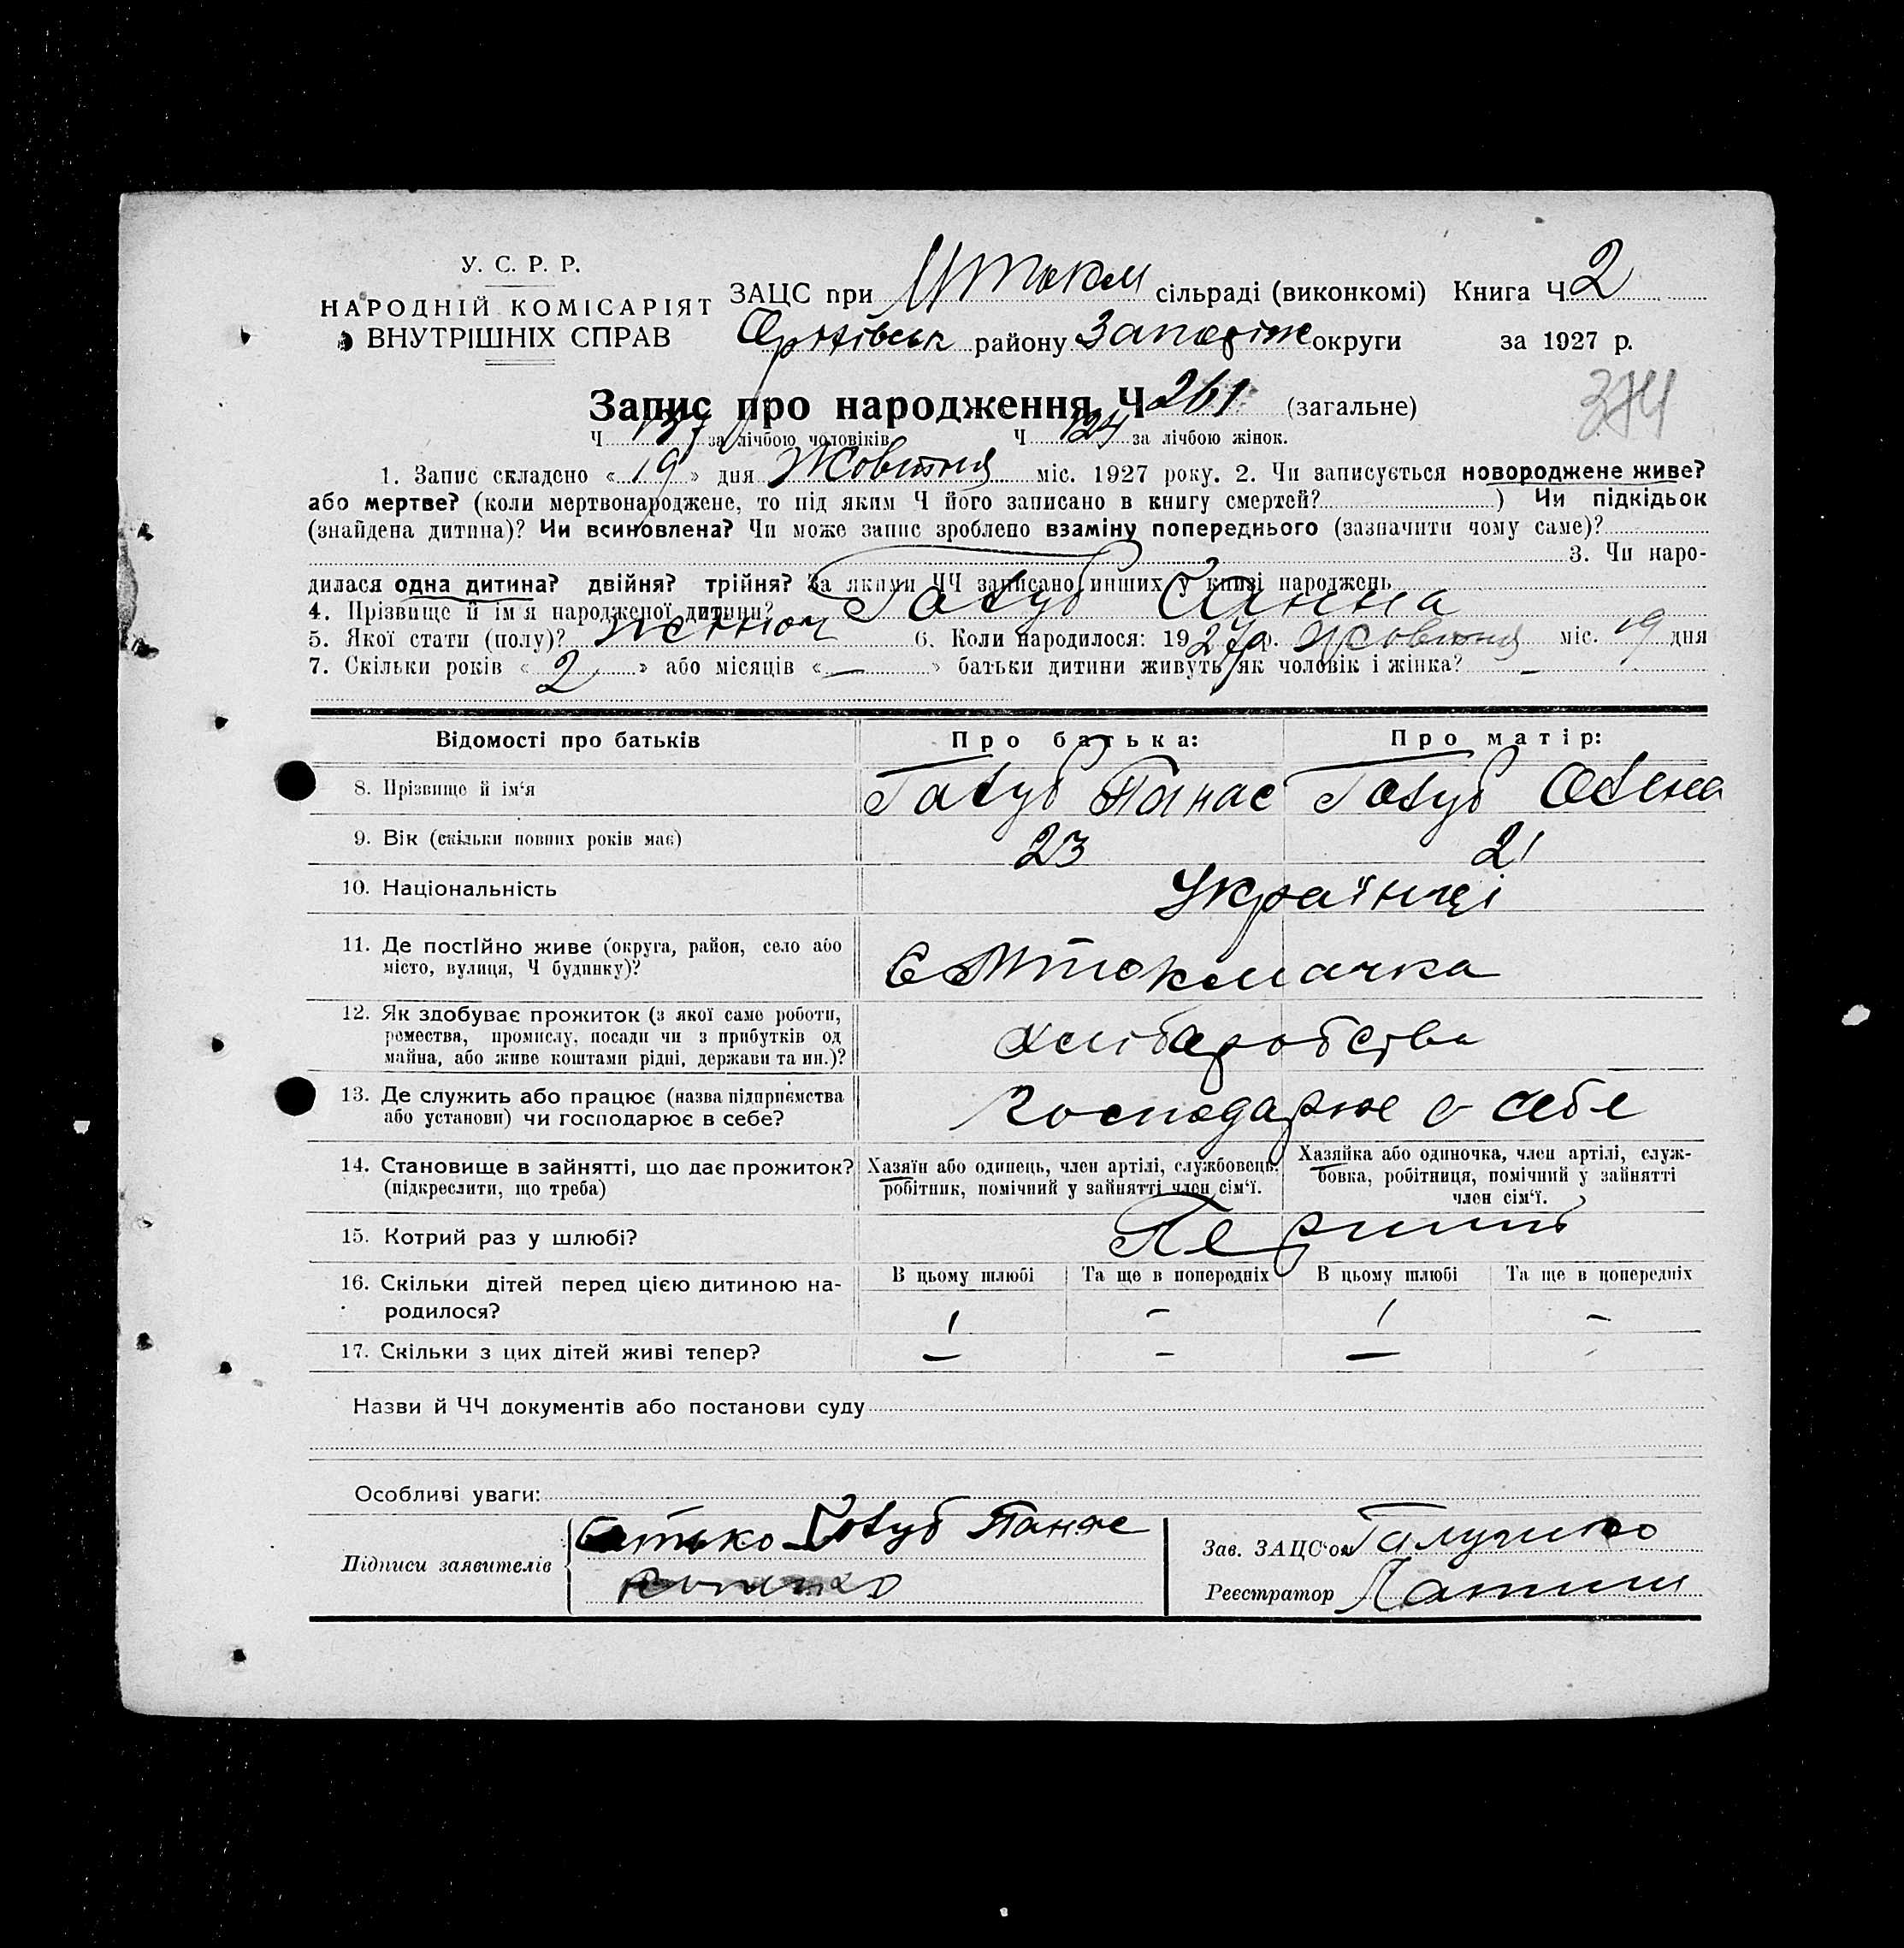 У. С. Р. Р.
НАРОДНІЙ КОМІСАРІЯТ
ВНУТРІШНІХ СПРАВ
ЗАЦС при Мтокм сільраді (виконкомі) Книга Ч 2
Оріхівськ району Запоріж округи за 1927 р.
374
Запис про народження Ч 261 (загальне)
Ч 137 за лічбою чоловіків Ч 124 за лічбою жінок.
1. Запис складено « 19 » дня Жовтня міс. 1927 року. 2. Чи записується новороджене живе?
або мертве? (коли мертвонароджене, то під яким Ч його записано в книгу смертей? ) Чи підкідьок
(знайдена дитина)? Чи всиновлена? Чи може запис зроблено взаміну попереднього (зазначити чому саме)?
3. Чи наро-
дилася одна дитина? двійня? трійня? За якими ЧЧ записано инших у книзі народжень
4. Прізвище й ім'я народженої дитини? Голуб Ганна
5. Якої стати (полу)? жіночої 6. Коли народилося: 1927 р. Жовтня міс. 19 дня
7. Скільки років « 2 » або місяців « — » батьки дитини живуть як чоловік і жінка? –
Відомості про батьків Про батька: Про матір:
8. Прізвище й ім'я Голуб Панас Голуб Олена
9. Вік (скільки повних років має) 23 21
10. Національність Українці
11. Де постійно живе (округа, район, село або
місто, вулиця, Ч будинку)? С Мтокмачка
12. Як здобуває прожиток (з якої само роботи,
ремества, промислу, посади чи з прибутків од
майна, або живе коштами рідні, держави та ин.)? хліборобства
13. Де служить або працює (назва підприємства
або установи) чи господарює в себе? Господарює в себе
14. Становище в зайнятті, що дає прожиток? Хазяїн або одинець, член артілі, службовець, Хазяйка або одиночка, член артілі, служ-
(підкреслити, що треба) робітник, помічний у зайнятті член сім'ї. бовка, робітниця, помічний у зайнятті
член сім'ї.
15. Котрий раз у шлюбі? Перший
16. Скільки дітей перед цією дитиною на-
родилося? В цьому шлюбі Та ще в попередніх В цьому шлюбі Та ще в попередніх
1 – 1 –
17. Скільки з цих дітей живі тепер? — – — –
Назви й ЧЧ документів або постанови суду
Особливі уваги:
Підписи заявителів Батько Голуб Панас
Зав. ЗАЦС'ом
Реєстратор